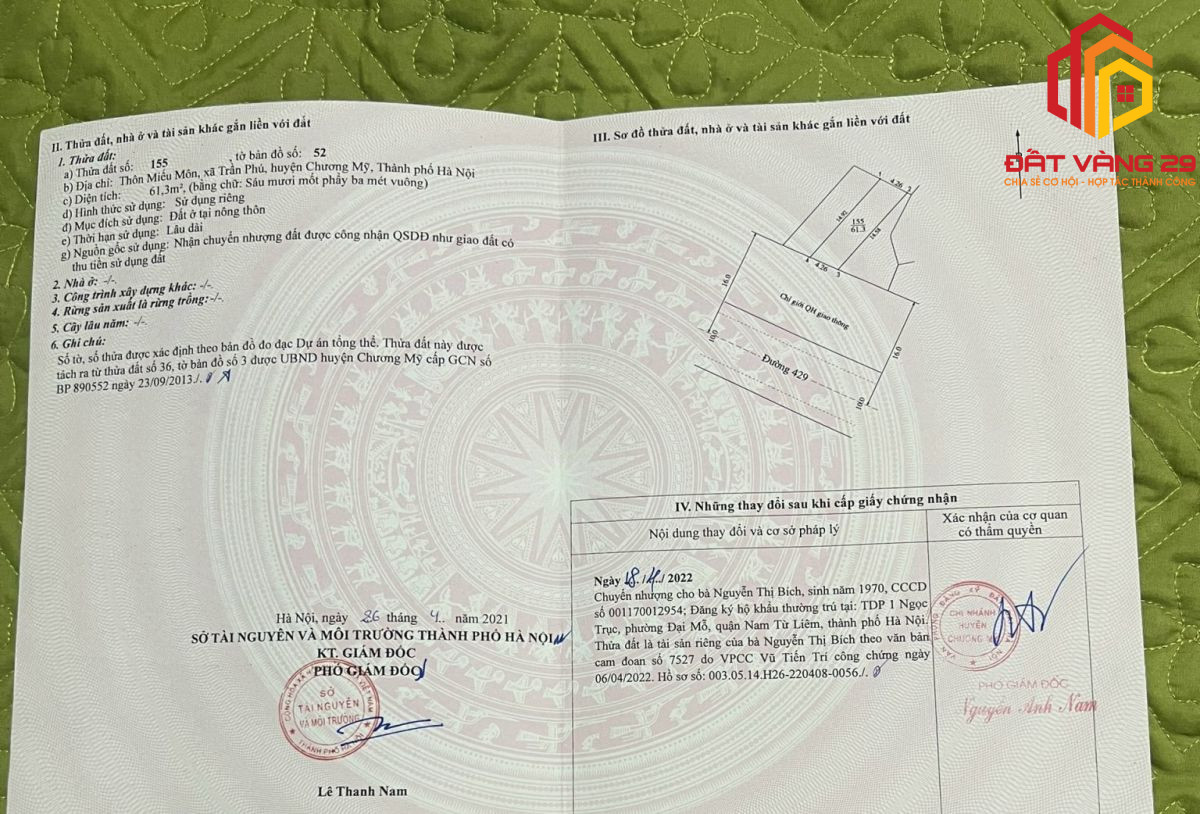 ĐẤT VÀNG 29
CHIA SẺ CƠ HỘI - HỢP TÁC THÀNH CÔNG
II. Thửa đất, nhà ở và tài sản khác gắn liền với đất
1. Thửa đất:
a) Thửa đất số: 155 , tờ bản đồ số: 52
b) Địa chỉ: Thôn Miếu Môn, xã Trần Phú, huyện Chương Mỹ, Thành phố Hà Nội
c) Diện tích: 61,3m², (bằng chữ: Sáu mươi mốt phẩy ba mét vuông)
d) Hình thức sử dụng: Sử dụng riêng
đ) Mục đích sử dụng: Đất ở tại nông thôn
e) Thời hạn sử dụng: Lâu dài
g) Nguồn gốc sử dụng: Nhận chuyển nhượng đất được công nhận QSDĐ như giao đất có
thu tiền sử dụng đất
2. Nhà ở: -/-.
3. Công trình xây dựng khác: -/-.
4. Rừng sản xuất là rừng trồng:-/-.
5. Cây lâu năm: -/-.
6. Ghi chú:
Số tờ, số thửa được xác định theo bản đồ đo đạc Dự án tổng thể. Thửa đất này được
tách ra từ thửa đất số 36, tờ bản đồ số 3 được UBND huyện Chương Mỹ cấp GCN số
BP 890552 ngày 23/09/2013./.
Hà Nội, ngày 26 tháng 4.. năm 2021
SỞ TÀI NGUYÊN VÀ MÔI TRƯỜNG THÀNH PHỐ HÀ NỘI
KT. GIÁM ĐỐC
PHÓ GIÁM ĐỐC
SỞ
TÀI NGUYÊN
VÀ MÔI TRƯỜNG
THÀNH PHỐ HÀ NỘI
Lê Thanh Nam
III. Sơ đồ thửa đất, nhà ở và tài sản khác gắn liền với đất
1
4.26
2
14.92
155
61.3
14.58
4
4.26
3
16.0
Chỉ giới QH giao thông
16.0
10.0
Đường 429
10.0
IV. Những thay đổi sau khi cấp giấy chứng nhận
Nội dung thay đổi và cơ sở pháp lý
Xác nhận của cơ quan
có thẩm quyền
Ngày 18./4../ 2022
Chuyển nhượng cho bà Nguyễn Thị Bích, sinh năm 1970, CCCD
số 001170012954; Đăng ký hộ khẩu thường trú tại: TDP 1 Ngọc
Trục, phường Đại Mỗ, quận Nam Từ Liêm, thành phố Hà Nội.
Thửa đất là tài sản riêng của bà Nguyễn Thị Bích theo văn bản
cam đoan số 7527 do VPCC Vũ Tiến Trí công chứng ngày
06/04/2022. Hồ sơ số: 003.05.14.H26-220408-0056./.
CHI NHÁNH
HUYỆN
CHƯƠNG
PHÓ GIÁM ĐỐC
Nguyễn Anh Nam